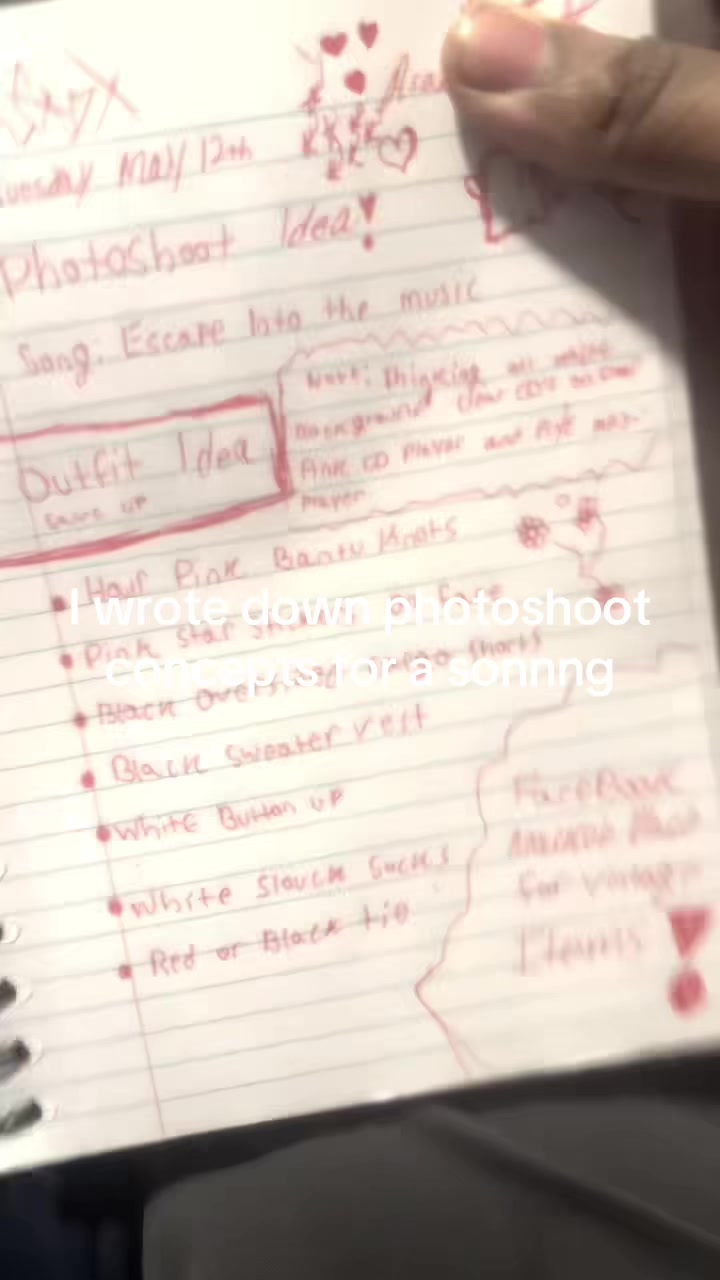 Tuesday May 12th
Photoshoot Idea!
Song: Escape Into the music
Note: Thinking all white
Background clear CD's
Pink CD Player and
Player
Outfit Idea
Hair Pink Bantu Knots
Pink star face
Black shorts
Black Sweater vest
White Button UP
White Slouch Socks
Red or Black tie
FaceBook
for vintage
Items!
I wrote down photoshoot
concepts for a sonnng